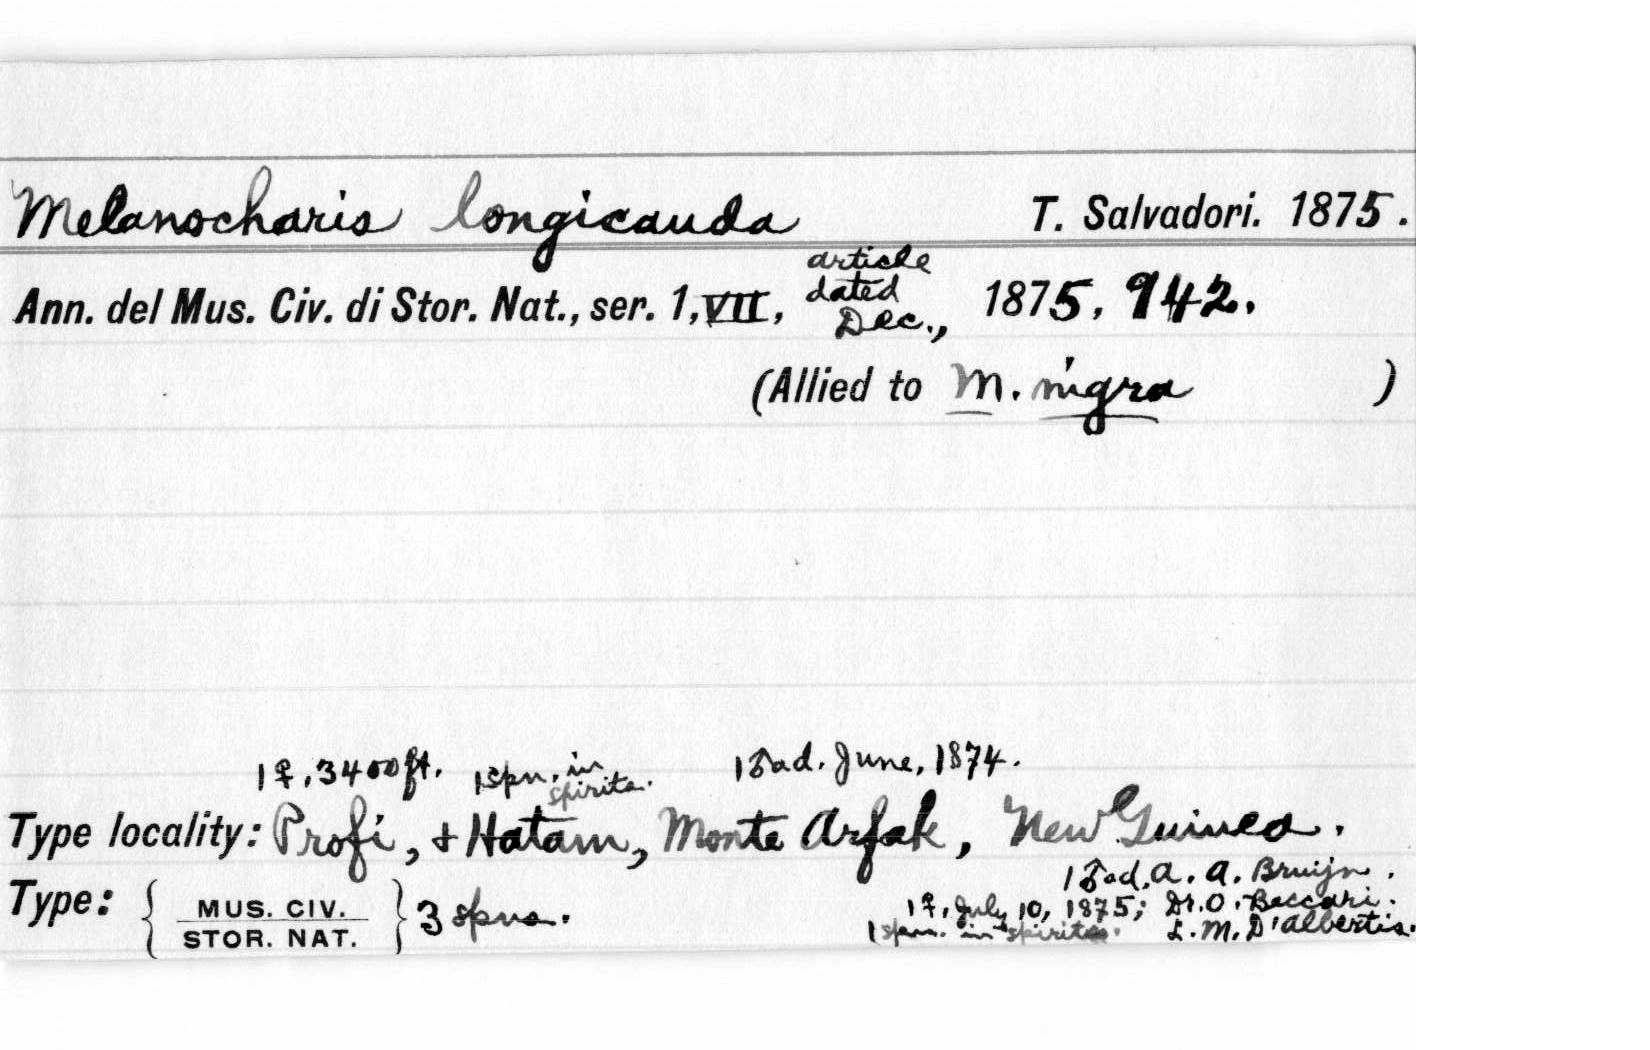 Melanocharis longicauda T. Salvadori. 1875.
Ann. del Mus. Civ. di Stor. Nat., ser. 1, VII, article dated Dec., 1875, 942.
(Allied to M. nigra )
1♀, 3400 ft. 1 spn. in spirits. 1♂ad. June, 1874.
Type locality: Profi, + Hatam, Monte Arfak, New Guinea.
1♂ad. A. A. Bruijn.
Type: { MUS. CIV. STOR. NAT. } 3 spns. 1♀, July 10, 1875; Dr. O. Beccari.
1 spn. in spirits. L. M. D'Albertis.